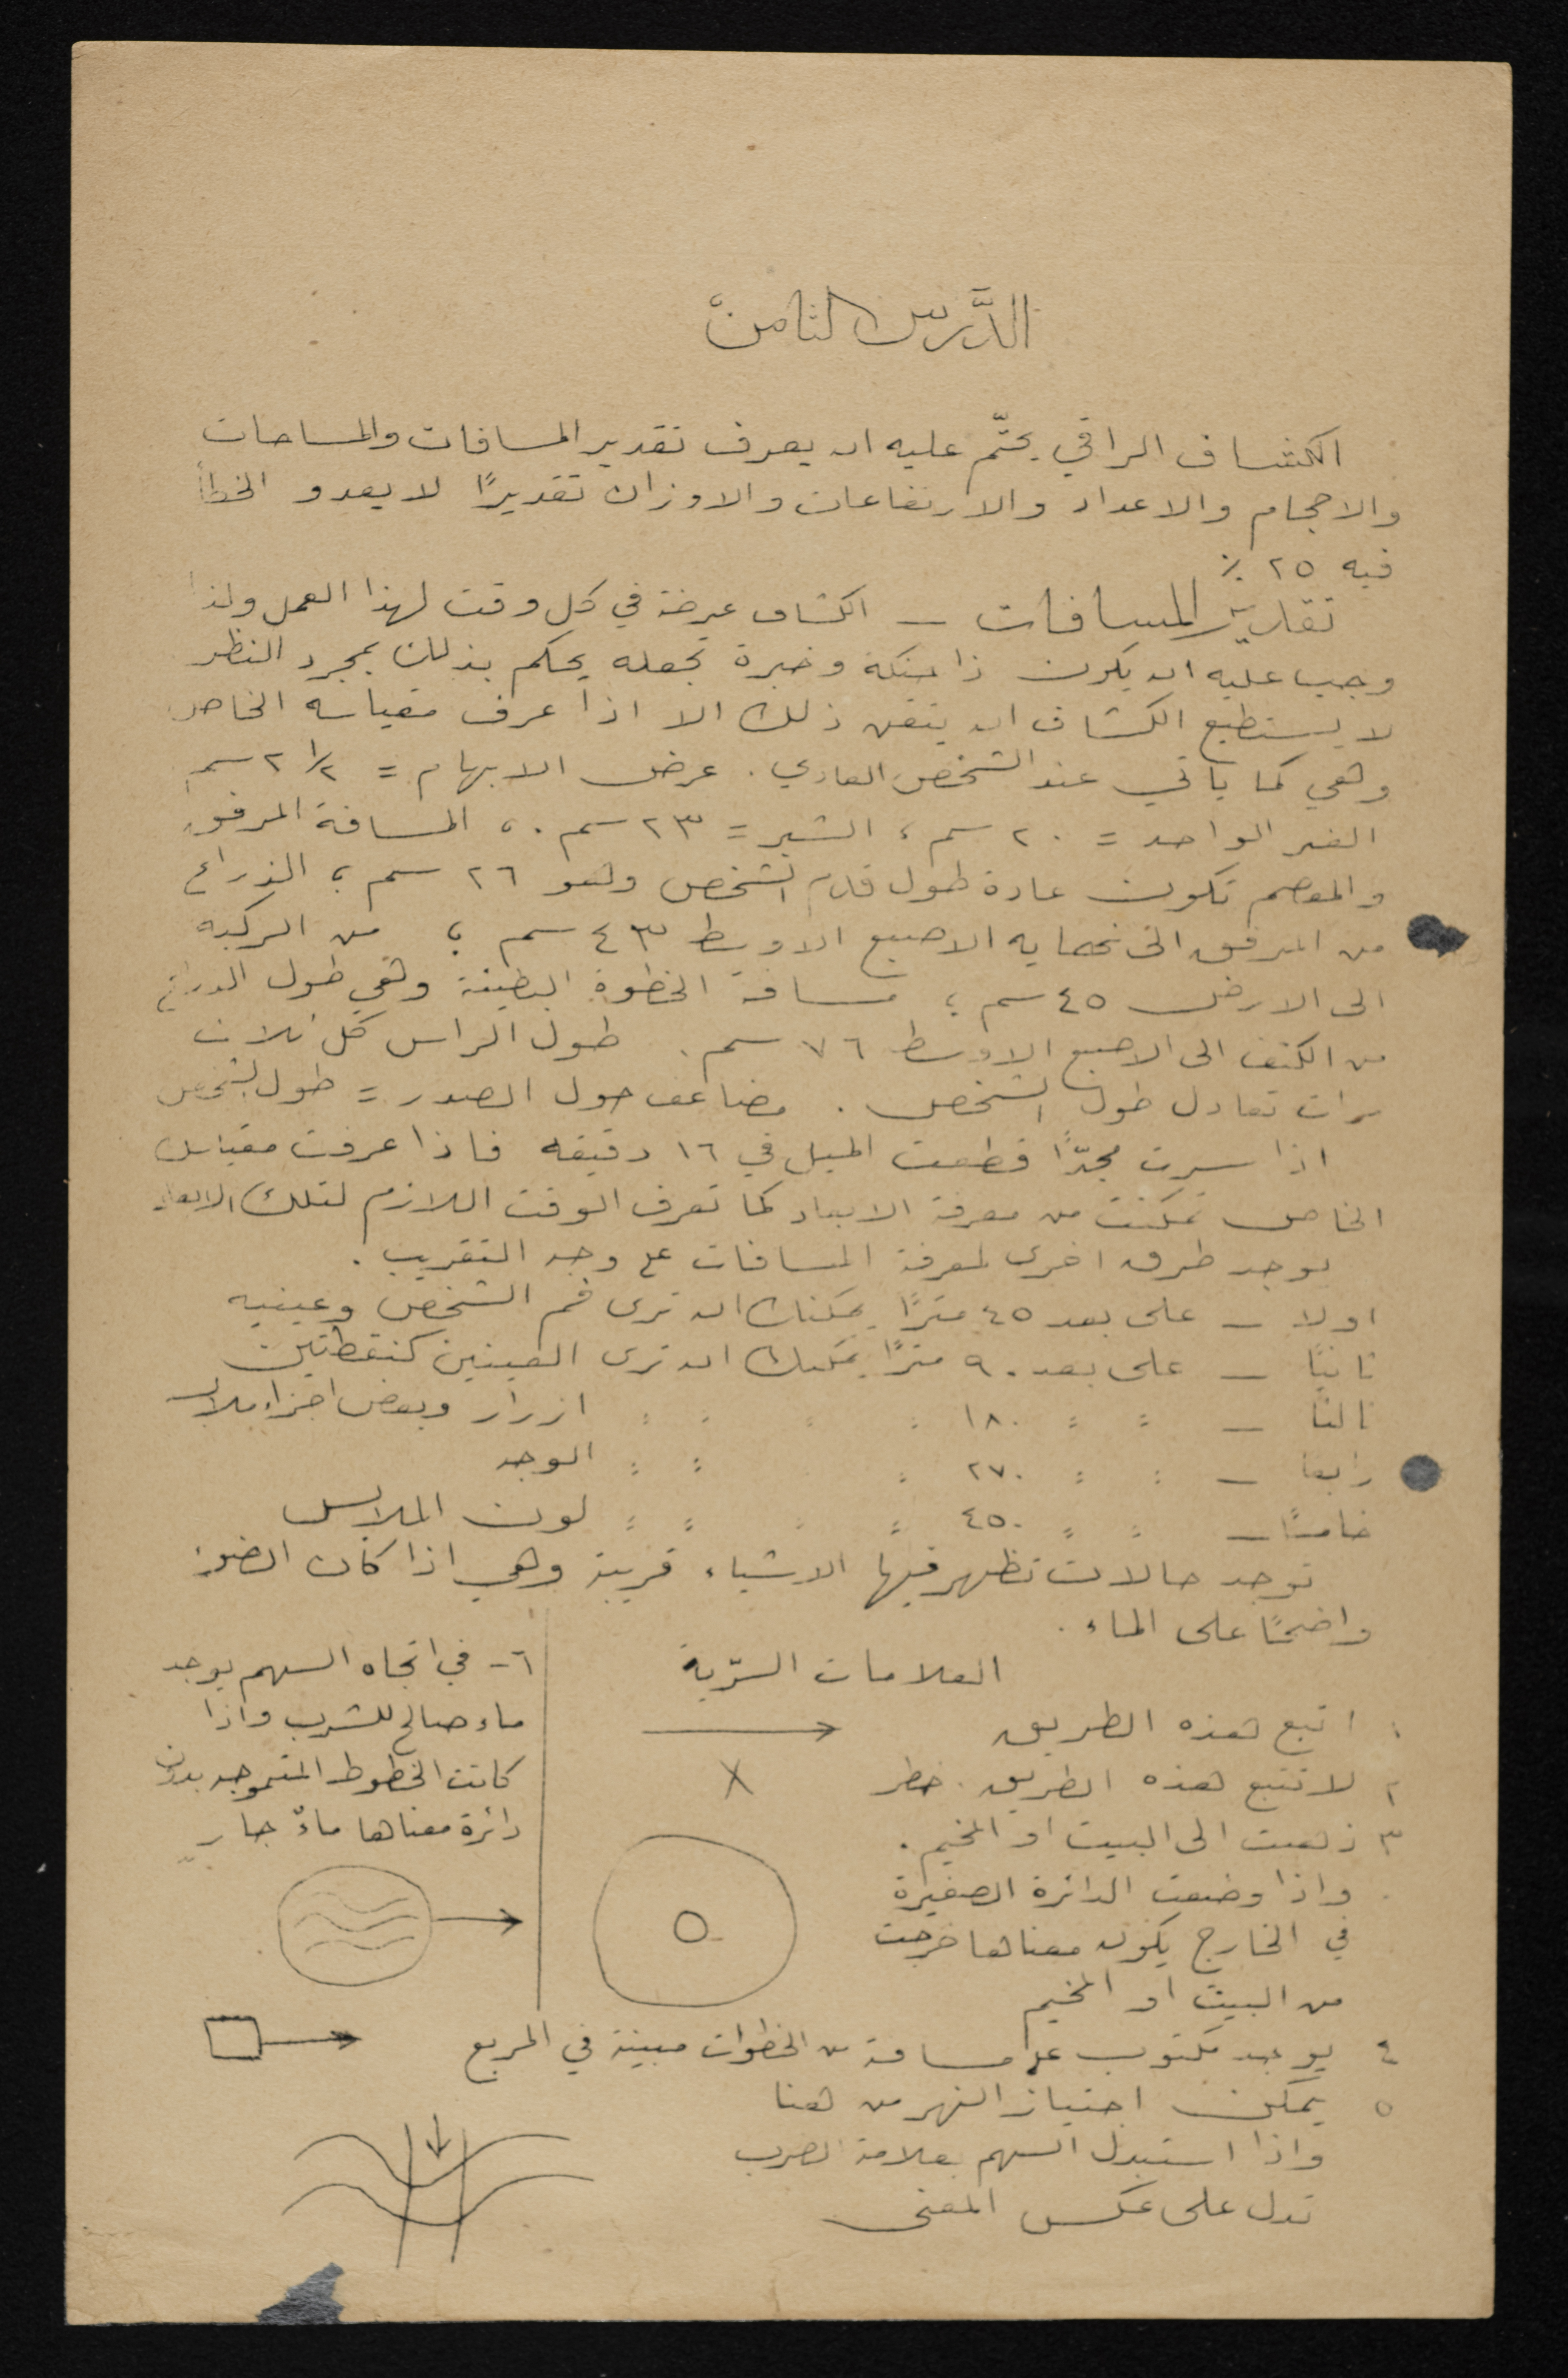 الدَّرس الثامن
الكشاف الراقي يحتّم عليه ان يعرف تقدير المسافات والمساحات
والاحجام والاعداد والارتفاعات والاوزان تقديرًا لا يعدو الخطأ
فيه ٢٥ ٪
تقدير المسافات — الكشاف عرضة في كل وقت لهذا العمل ولذا
وجب عليه ان يكون ذا حنكة وخبرة تجعله يحكم بذلك بمجرد النظر
لا يستطيع الكشاف ان يتقن ذلك الا اذا عرف مقياسه الخاص
وهي كما ياتي عند الشخص العادي . عرض الابهام = ٢ ١/٢ سم
الفتر الواحد = ٢٠ سم ، الشبر = ٢٣ سم . ، المسافة المرفق
والمعصم تكون عادة طول قدم الشخص وهو ٢٦ سم ، الذراع
من المرفق الى نهاية الاصبع الاوسط ٤٣ سم ، من الركبة
الى الارض ٤٥ سم ، مسافة الخطوة البطيئة وهي طول الذراع
من الكتف الى الاصبع الاوسط ٧٦ سم . طول الراس كل ثلاث
مرات تعادل طول الشخص . مضاعف حول الصدر = طول الشخص
اذا سرت مجدًّا قطعت الميل في ١٦ دقيقه فاذا عرفت مقياس
الخاص تمكنت من معرفة الابعاد كما تعرف الوقت اللازم لتلك الابعاد
يوجد طرق اخرى لمعرفة المسافات على وجه التقريب .
اولا — على بعد ٤٥ مترًا يمكنك ان ترى فم الشخص وعينيه
ثانيًا — على بعد ٩٠ مترًا يمكنك ان ترى العينين كنقطتين
ثالثًا — = = ١٨٠ = = = = ازرار وبعض اجزاء ملابس
رابعا — = = ٢٧٠ = = = الوجه
خامسًا — = = ٤٥٠ = = = = لون الملابس
توجد حالات تظهر فيها الاشياء قريبة وهي اذا كان الضوء
واضحًا على الماء .
العلامات السّرية
١ اتبع هذه الطريق
٢ لا تتبع هذه الطريق . خطر
٣ ذهبت الى البيت او المخيم .
واذا وضعت الدائرة الصغيرة
في الخارج يكون معناها خرجت
من البيت او المخيم
٤ يوجد مكتوب على مسافة من الخطوات مبينة في المربع
٥ يمكن اجتياز النهر من هنا
واذا استبدل السهم بعلامة الضرب
تدل على عكس المعنى
٦ - في اتجاه السهم يوجد
ماء صالح للشرب واذا
كانت الخطوط المتموجه بدون
دائرة معناها ماءٌ جارٍ